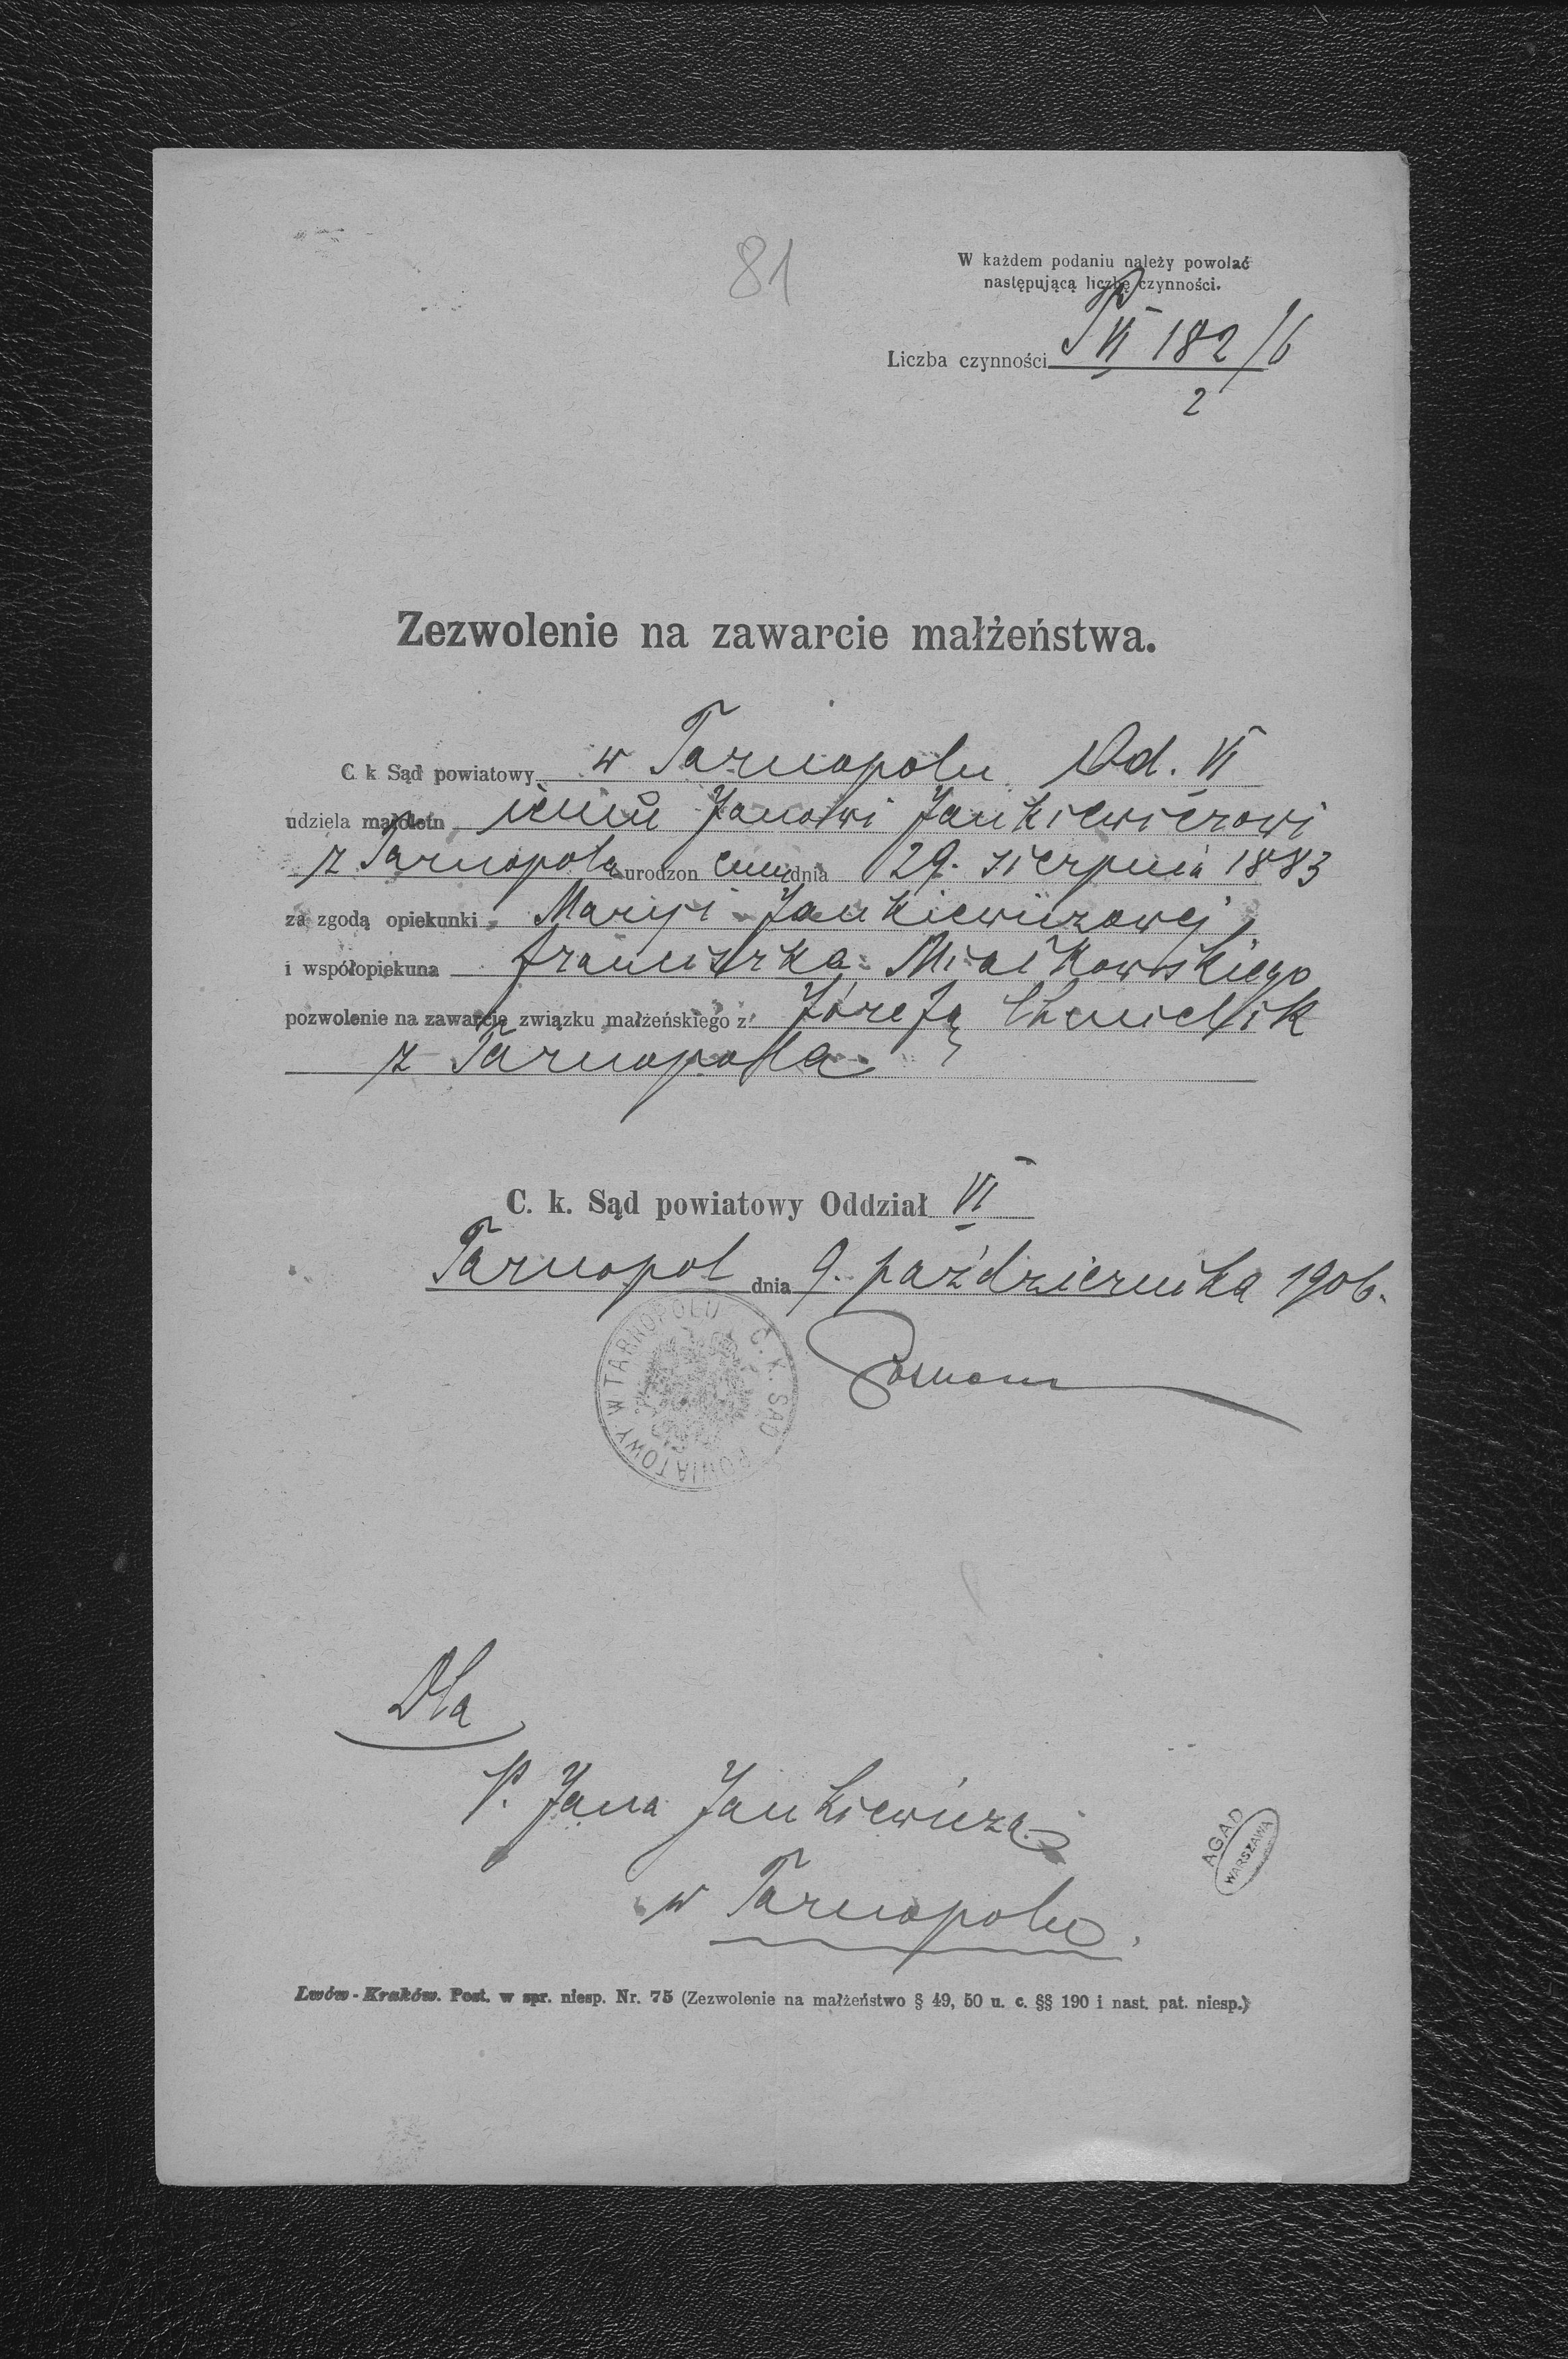 81
W każdem podaniu należy powołać
następującą liczbę czynności.
Liczba czynności P VI 182/6
2
Zezwolenie na zawarcie małżeństwa.
C. k. Sąd powiatowy w Tarnopolu Od. VI
udziela małoletn iemu Janowi Jankiewiczowi
z Tarnopola urodzon emu dnia 29. sierpnia 1883
za zgodą opiekunki Maryi Jankiewiczowej
i współopiekuna Franciszka
pozwolenie na zawarcie związku małżeńskiego z Józefą
z Tarnopola
C. k. Sąd powiatowy Oddział VI
Tarnopol dnia 9. października 1906.
C. K. SĄD POWIATOWY W TARNOPOLU
Dla
P. Jana Jankiewicza
w Tarnopolu.
AGAD
WARSZAWA
Lwów-Kraków. Post. w spr. niesp. Nr. 75 (Zezwolenie na małżeństwo § 49, 50 u. c. §§ 190 i nast. pat. niesp.)